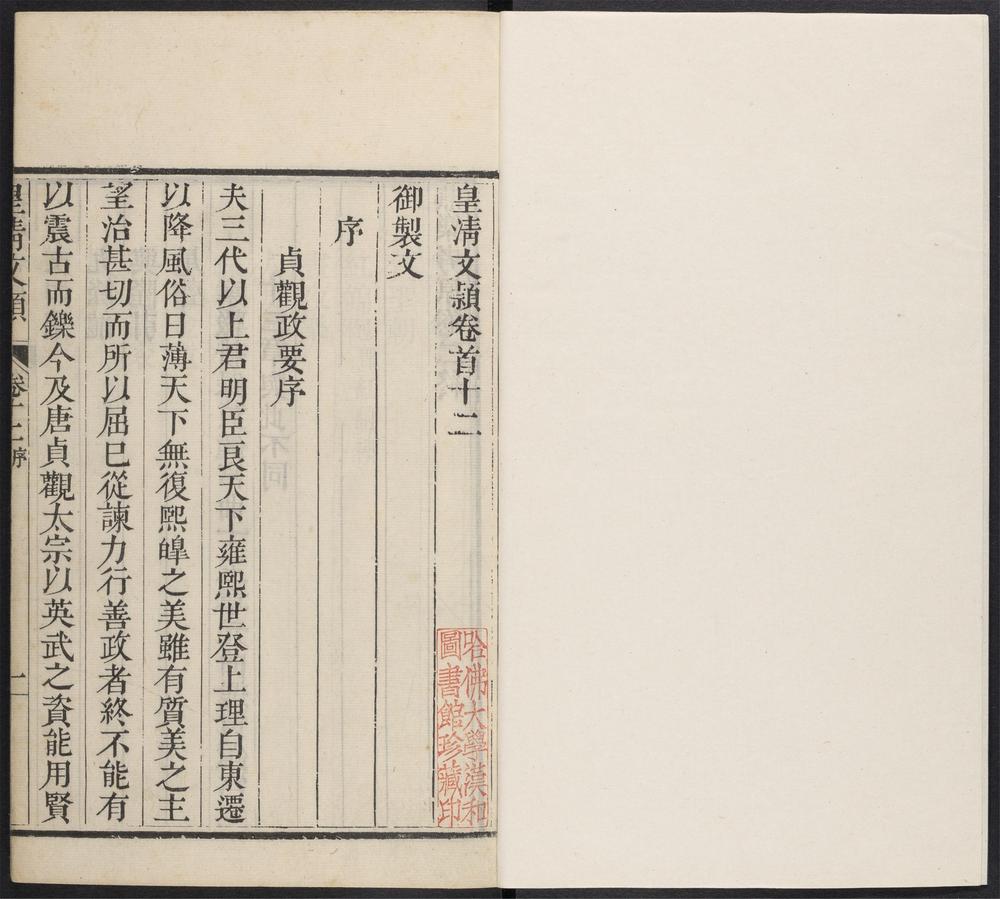 皇清文穎卷首十二
御製文
序
貞觀政要序
夫三代以上君明臣良天下雍熙世登上理自東遷
以降風俗日薄天下無復熙皥之美雖有質美之主
望治甚切而所以屈已從諫力行善政者終不能有
以震古而鑠今及唐貞觀太宗以英武之資能用賢
皇清文穎 卷十二 序 一
哈佛大學漢和
圖書館珍藏印